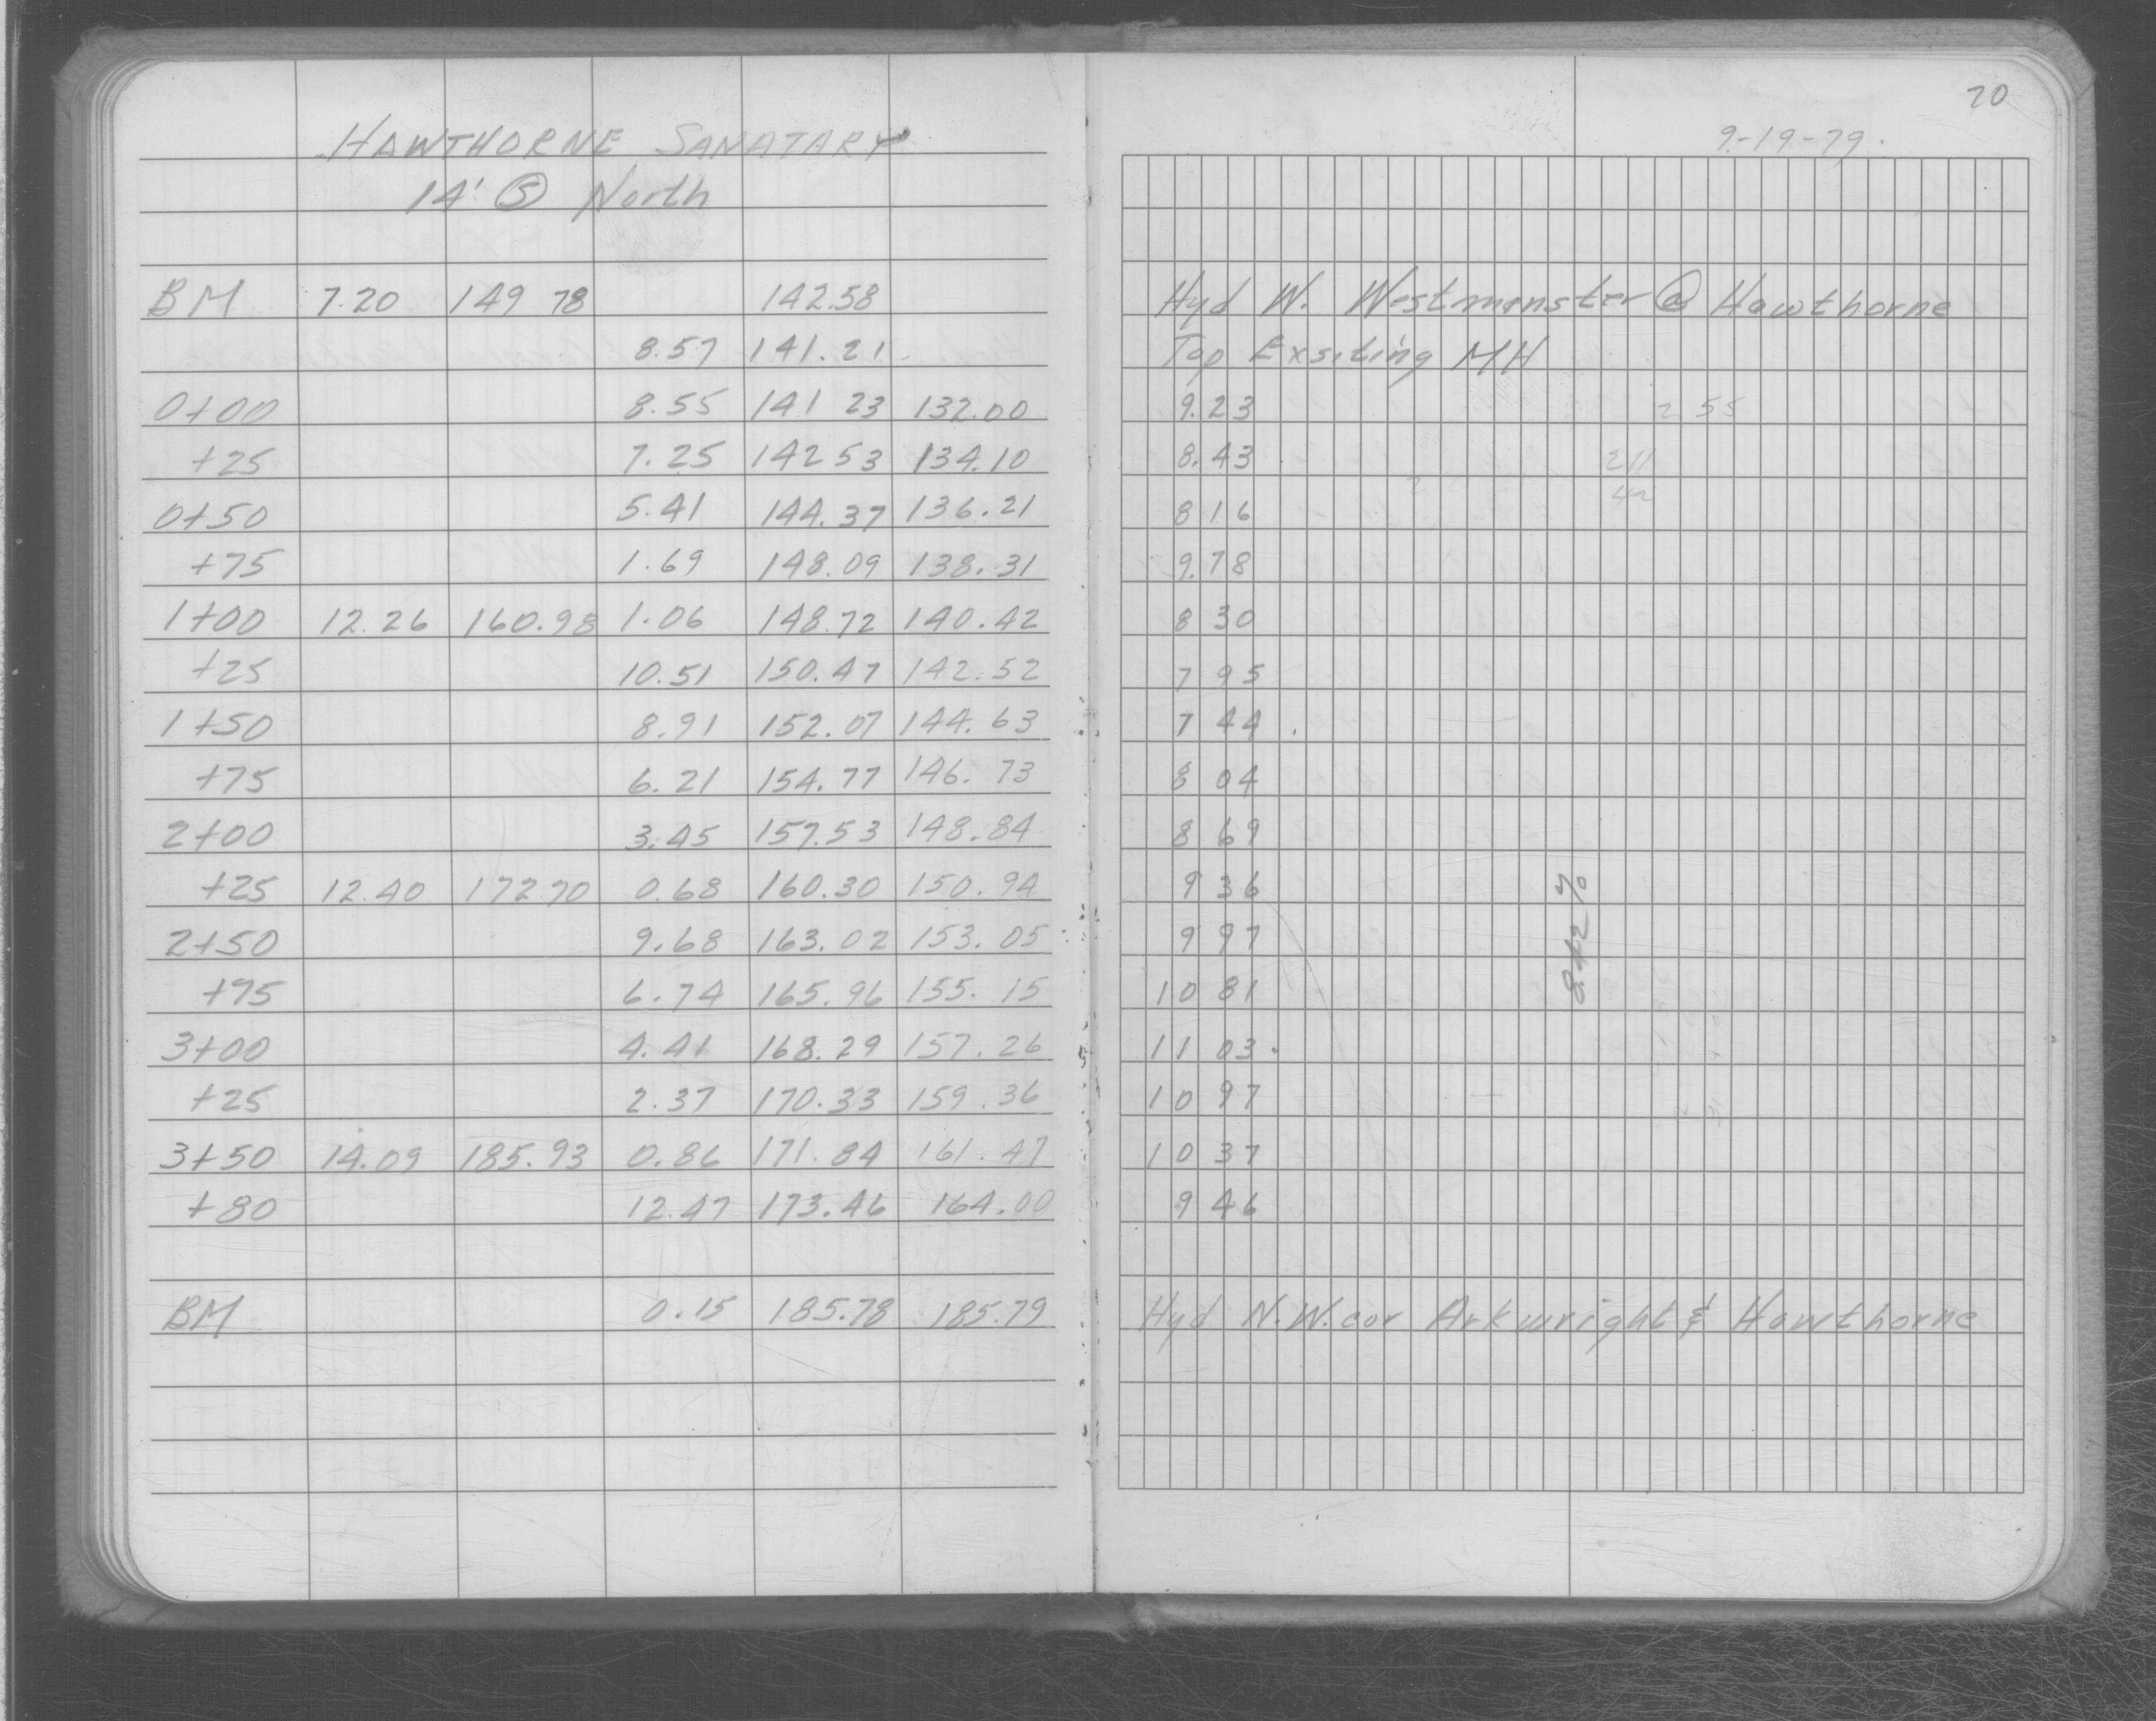 HAWTHORNE SANATARY
14' Ⓢ North
BM 7.20 149 78 142.58
8.57 141.21
0+00 8.55 141 23 132.00
+25 7.25 142 53 134.10
0+50 5.41 144.37 136.21
+75 1.69 148.09 138.31
1+00 12.26 160.98 1.06 148.72 140.42
+25 10.51 150.47 142.52
1+50 8.91 152.07 144.63
+75 6.21 154.77 146.73
2+00 3.45 157.53 148.84
+25 12.40 172 70 0.68 160.30 150.94
2+50 9.68 163.02 153.05
+75 6.74 165.96 155.15
3+00 4.41 168.29 157.26
+25 2.37 170.33 159.36
3+50 14.09 185.93 0.86 171.84 161.47
+80 12.47 173.46 164.00
BM 0.15 185.78 185.79
20
9-19-79
Hyd W. Westminster @ Hawthorne
Top Exsiting MH
9.23 2 55
8.43 211
42
8 16
9.78
8 30
7 95
7 44
8 04
8 69
9 36
9 97
8.42%
10 81
11 03
10 97
10 37
9 46
Hyd N.W. cor Arkwright & Hawthorne